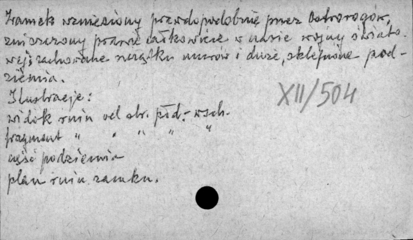 Zamek wzniesiony prawdopodobnie przez Ostrorogów,
zniszczony prawie całkowicie w czasie wojny świato-
wej, zachowane resztki murów i duże, sklepione pod-
ziemia.
Ilustracje:
XII/504
widok ruin od str. płd.-wsch.
fragment " " " - "
część podziemia
plan ruin zamku.